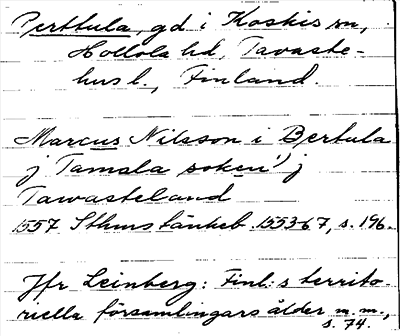 Perttula, gd i Koskis sn,
Hollola hd, Tavaste-
hus l., Finland.
Marcus Nilsson i Bertula
j Tamala soken 1) j
Tawasteland
1557 Sthms tänkeb. 1553-67, s. 196.
Jfr Leinberg: Finl:s territo-
riella församlingars ålder m.m.,
s. 74.